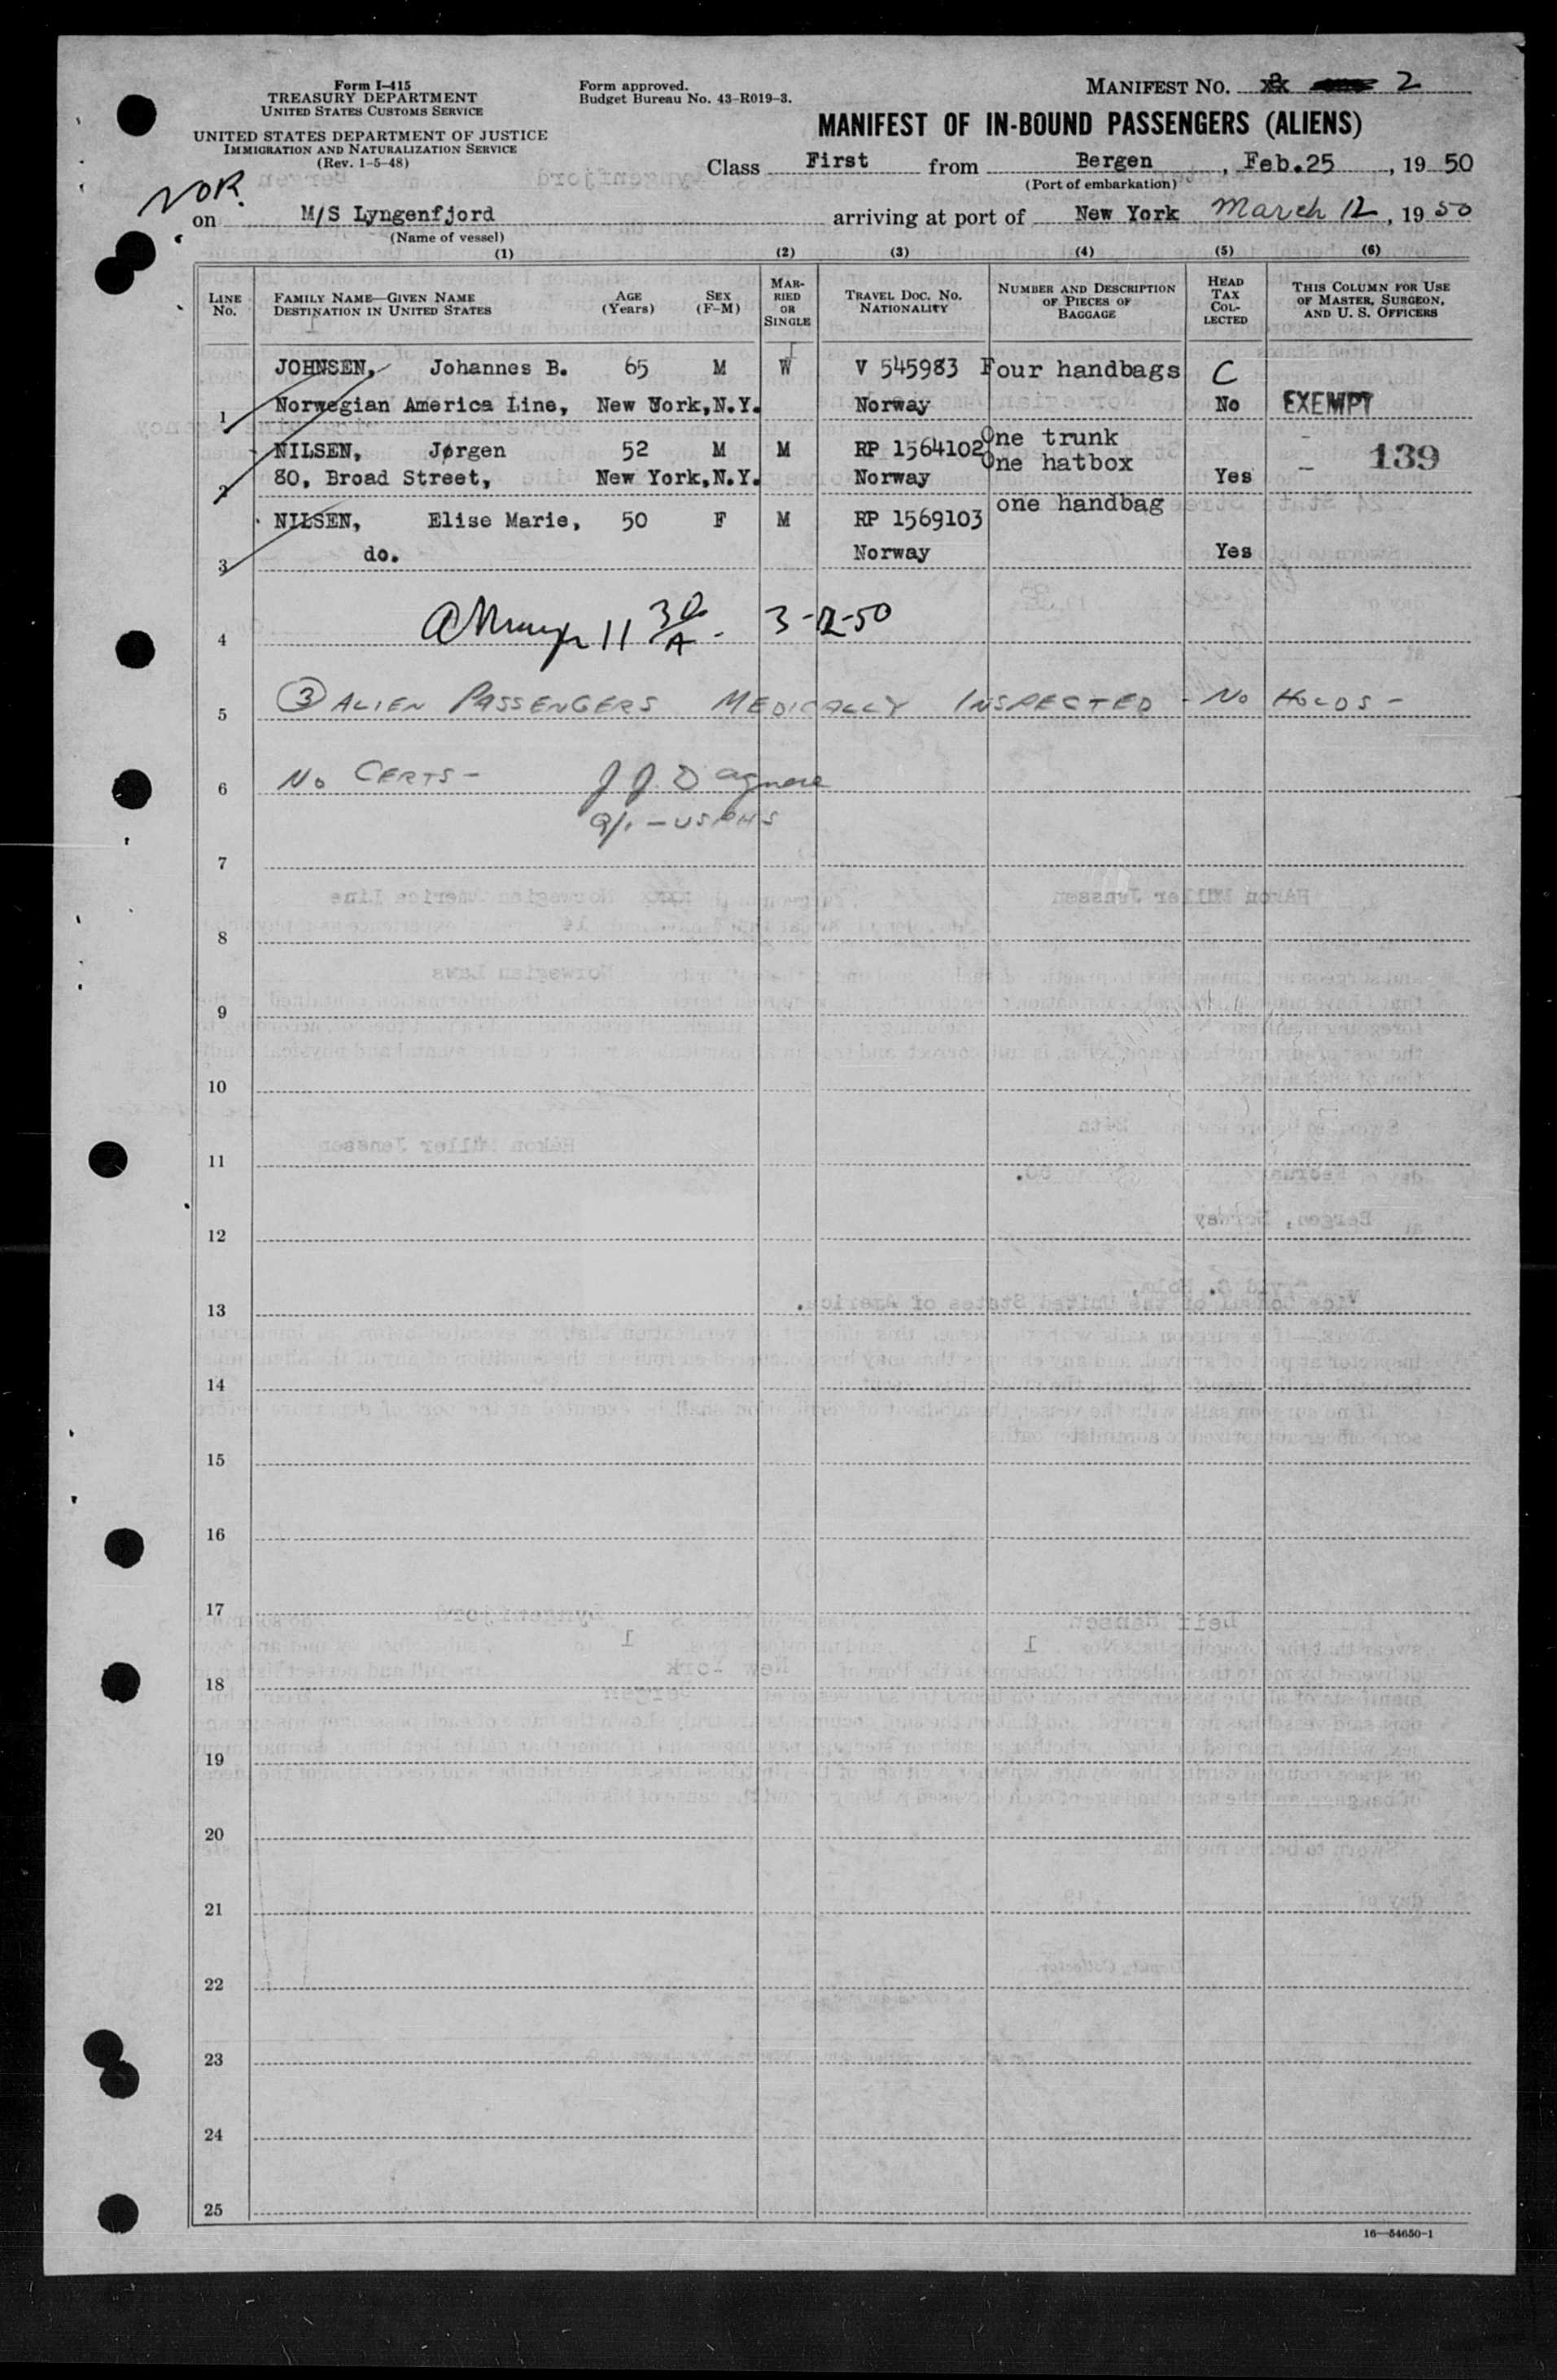 Form I-415
TREASURY DEPARTMENT
UNITED STATES CUSTOMS SERVICE
UNITED STATES DEPARTMENT OF JUSTICE
IMMIGRATION AND NATURALIZATION SERVICE
(Rev. 1-5-48)
Form approved.
Budget Bureau No. 43-R019-3.
MANIFEST NO. 2
MANIFEST OF IN-BOUND PASSENGERS (ALIENS)
Class First from Bergen, Feb.25, 1950
(Port of embarkation)
NOR.
on M/S Lyngenfjord arriving at port of New York March 12, 1950
(Name of vessel)
(1) (2) (3) (4) (5) (6)
LINE NO.
FAMILY NAME—GIVEN NAME
DESTINATION IN UNITED STATES
AGE (Years)
SEX (F-M)
MARRIED OR SINGLE
TRAVEL DOC. NO.
NATIONALITY
NUMBER AND DESCRIPTION OF PIECES OF BAGGAGE
HEAD TAX COLLECTED
THIS COLUMN FOR USE OF MASTER, SURGEON, AND U. S. OFFICERS
JOHNSEN, Johannes B. 65 M W V 545983 Four handbags C
1 Norwegian America Line, New York, N.Y. Norway No EXEMPT
NILSEN, Jørgen 52 M M RP 1564102 One trunk
One hatbox 139
2 80, Broad Street, New York, N.Y. Norway Yes
one handbag
NILSEN, Elise Marie, 50 F M RP 1569103
3 do. Norway Yes
4 11 30/A - 3-12-50
5 (3) ALIEN PASSENGERS MEDICALLY INSPECTED - NO HOLDS -
6 NO CERTS - J J D'Agnese
- USPHS
7
8
9
10
11
12
13
14
15
16
17
18
19
20
21
22
23
24
25
16—54650-1